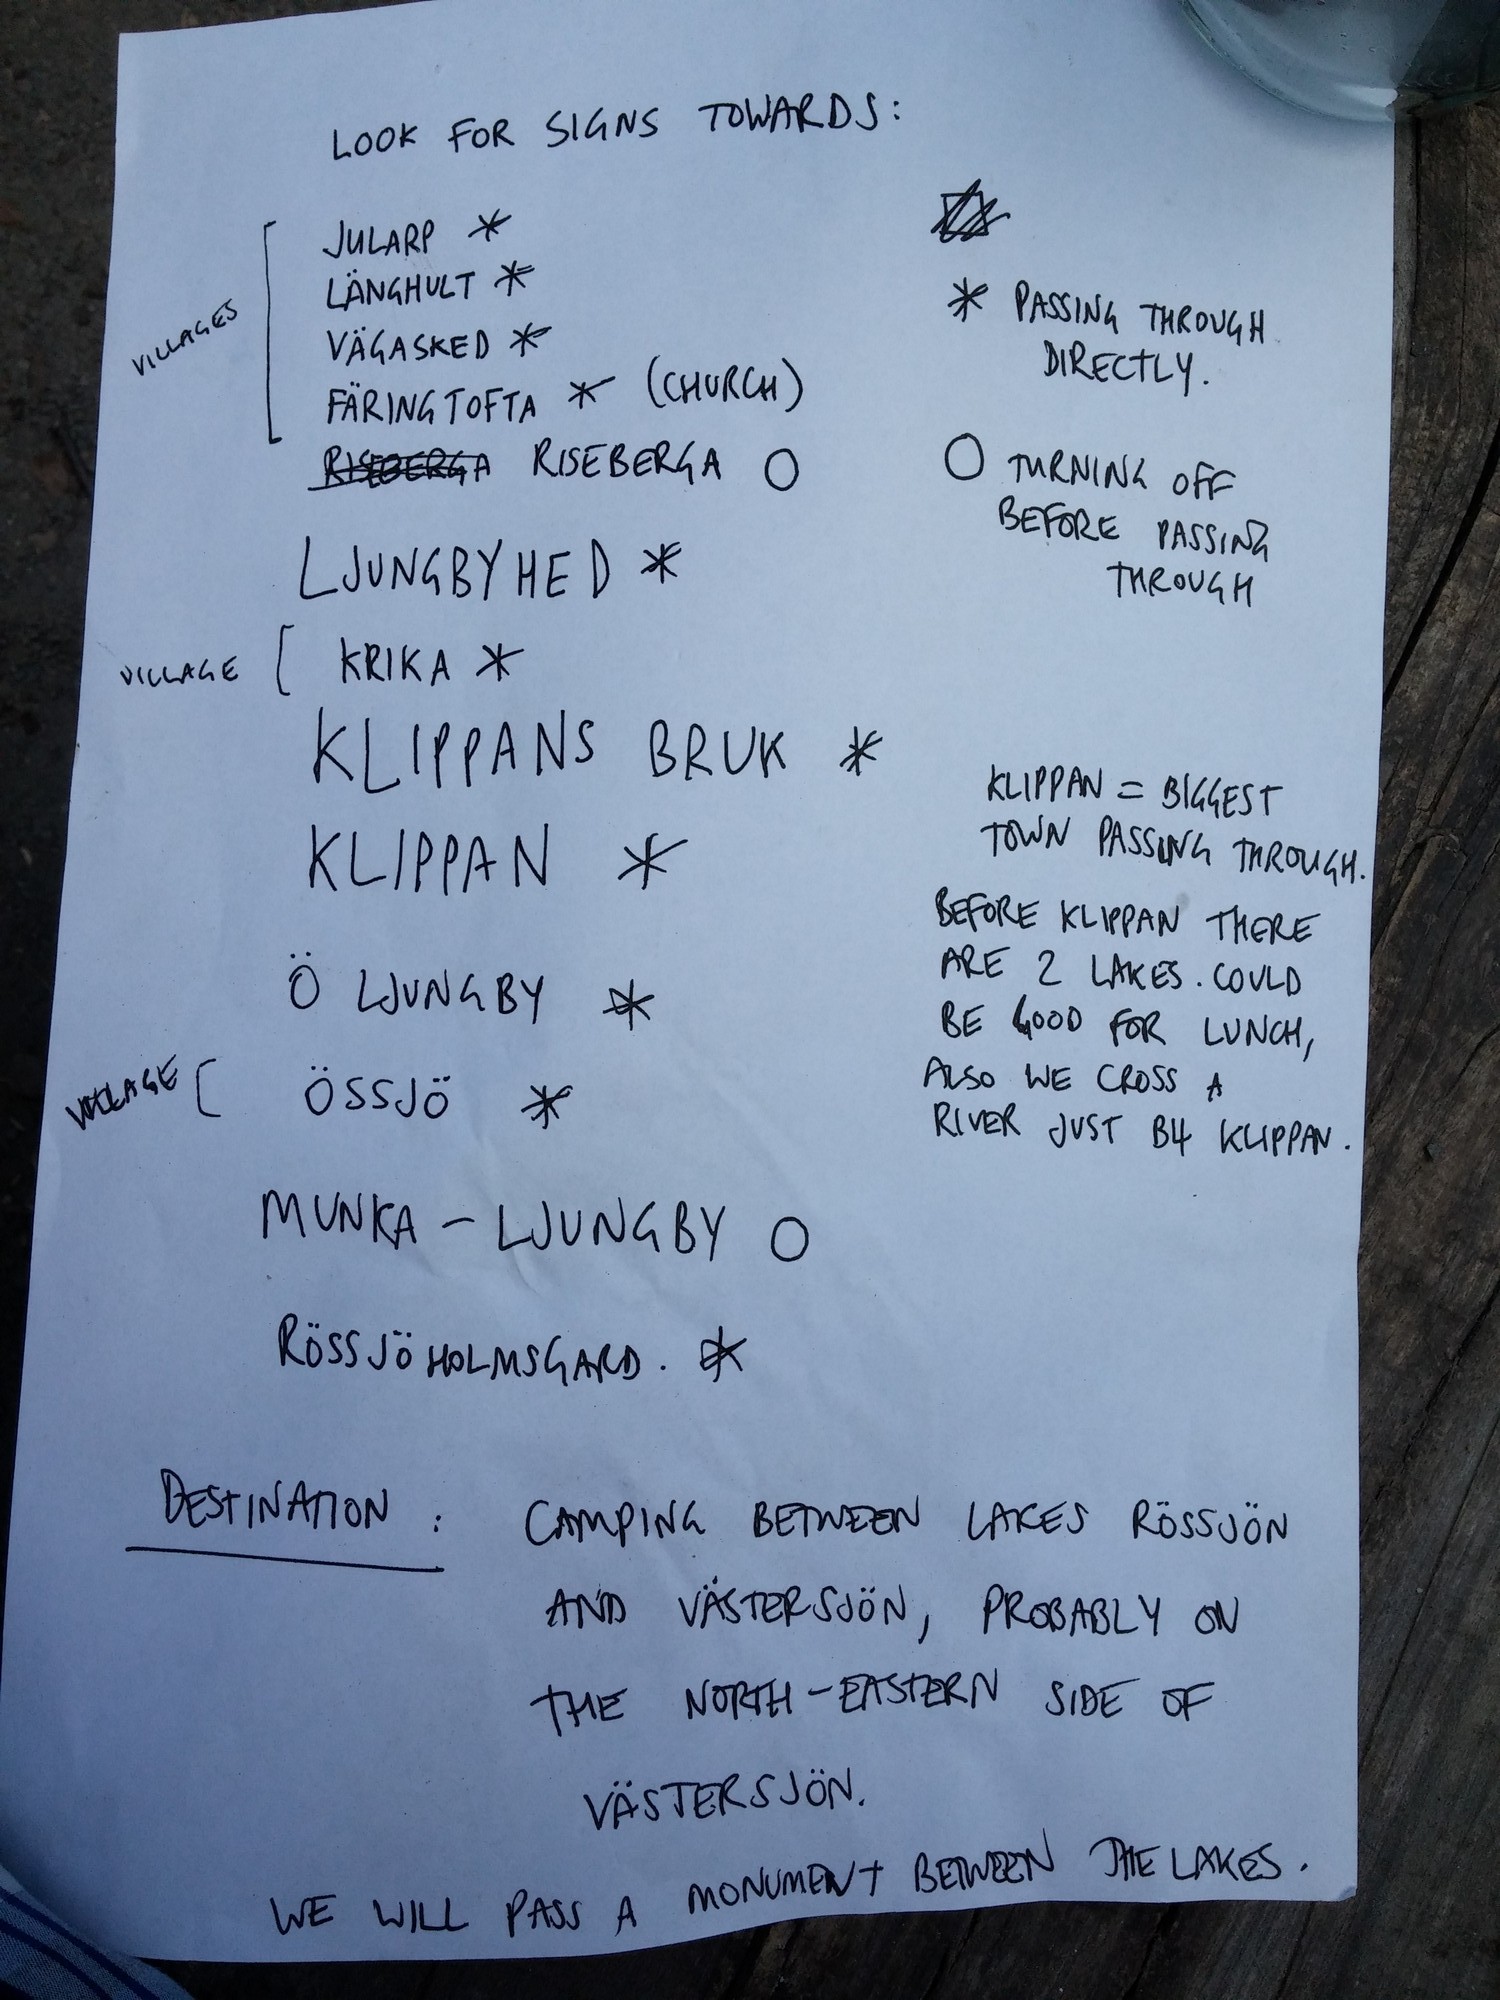 LOOK FOR SIGNS TOWARDS:
VILLAGES
JULARP *
LÄNGHULT *
VÄGASKED *
FÄRINGTOFTA * (CHURCH)
RISEBERGA RISEBERGA O
LJUNGBYHED *
VILLAGE
KRIKA *
KLIPPANS BRUK *
KLIPPAN *
Ö LJUNGBY *
VILLAGE
ÖSSJÖ *
MUNKA-LJUNGBY O
RÖSSJÖHOLMSGARD. *
* PASSING THROUGH
DIRECTLY.
O TURNING OFF
BEFORE PASSING
THROUGH
KLIPPAN = BIGGEST
TOWN PASSING THROUGH.
BEFORE KLIPPAN THERE
ARE 2 LAKES. COULD
BE GOOD FOR LUNCH,
ALSO WE CROSS A
RIVER JUST B4 KLIPPAN.
DESTINATION : CAMPING BETWEEN LAKES RÖSSJÖN
AND VÄSTERSJÖN, PROBABLY ON
THE NORTH-EASTERN SIDE OF
VÄSTERSJÖN.
WE WILL PASS A MONUMENT BETWEEN THE LAKES.